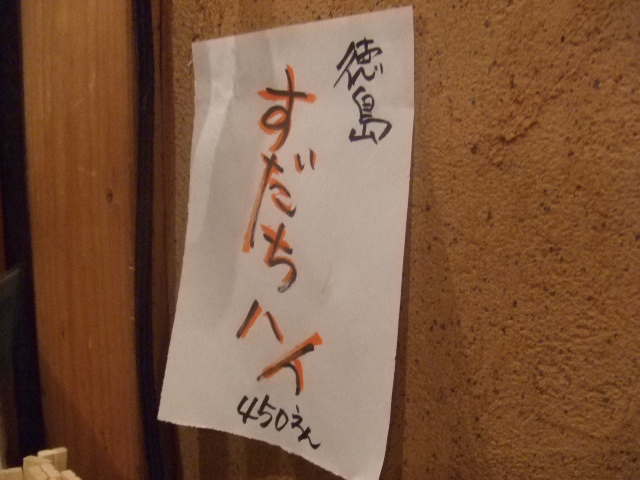 徳島
すだちハイ
450えん